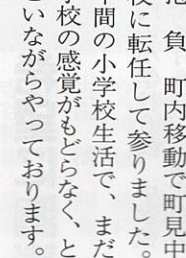 負　町内移動で町見中
校に転任して参りました。
年間の小学校生活で、まだ
学校の感覚がもどらなく、と
どいながらやっております。